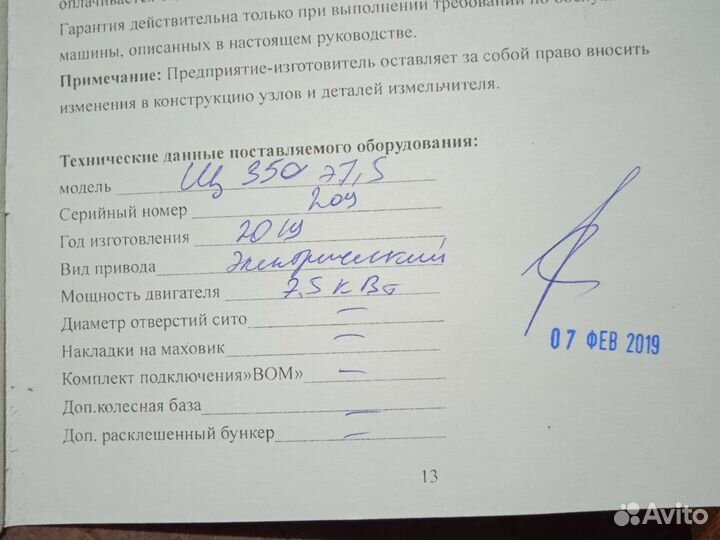 оплачивается
Гарантия действительна только при выполнении требований по
машины, описанных в настоящем руководстве.
Примечание: Предприятие-изготовитель оставляет за собой право вносить
изменения в конструкцию узлов и деталей измельчителя.
Технические данные поставляемого оборудования:
модель Щ 350 э7,5
Серийный номер 209
Год изготовления 2019
Вид привода Электрический
Мощность двигателя 7,5 кВт
Диаметр отверстий сито —
Накладки на маховик —
Комплект подключения»ВОМ» —
Доп.колесная база —
Доп. расклешенный бункер —
07 ФЕВ 2019
13
Avito